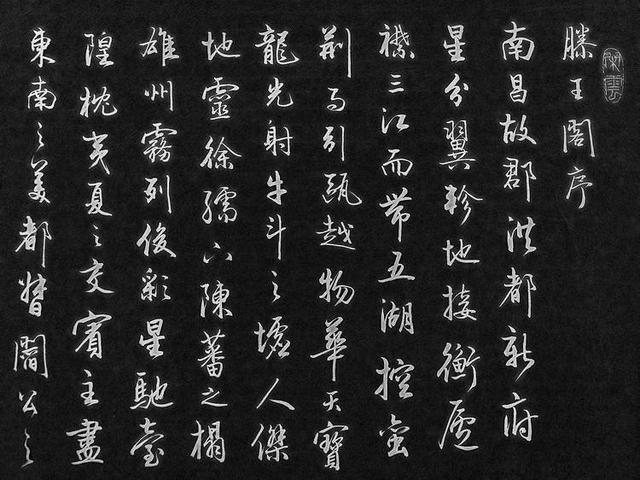 滕王閣序
南昌故郡洪都新府
星分翼軫地接衡廬
襟三江而帶五湖控蛮
荊而引甌越物華天寶
龍光射牛斗之墟人傑
地靈徐孺下陳蕃之榻
雄州霧列俊彩星馳臺
隍枕夷夏之交賓主盡
東南之美都督閻公之